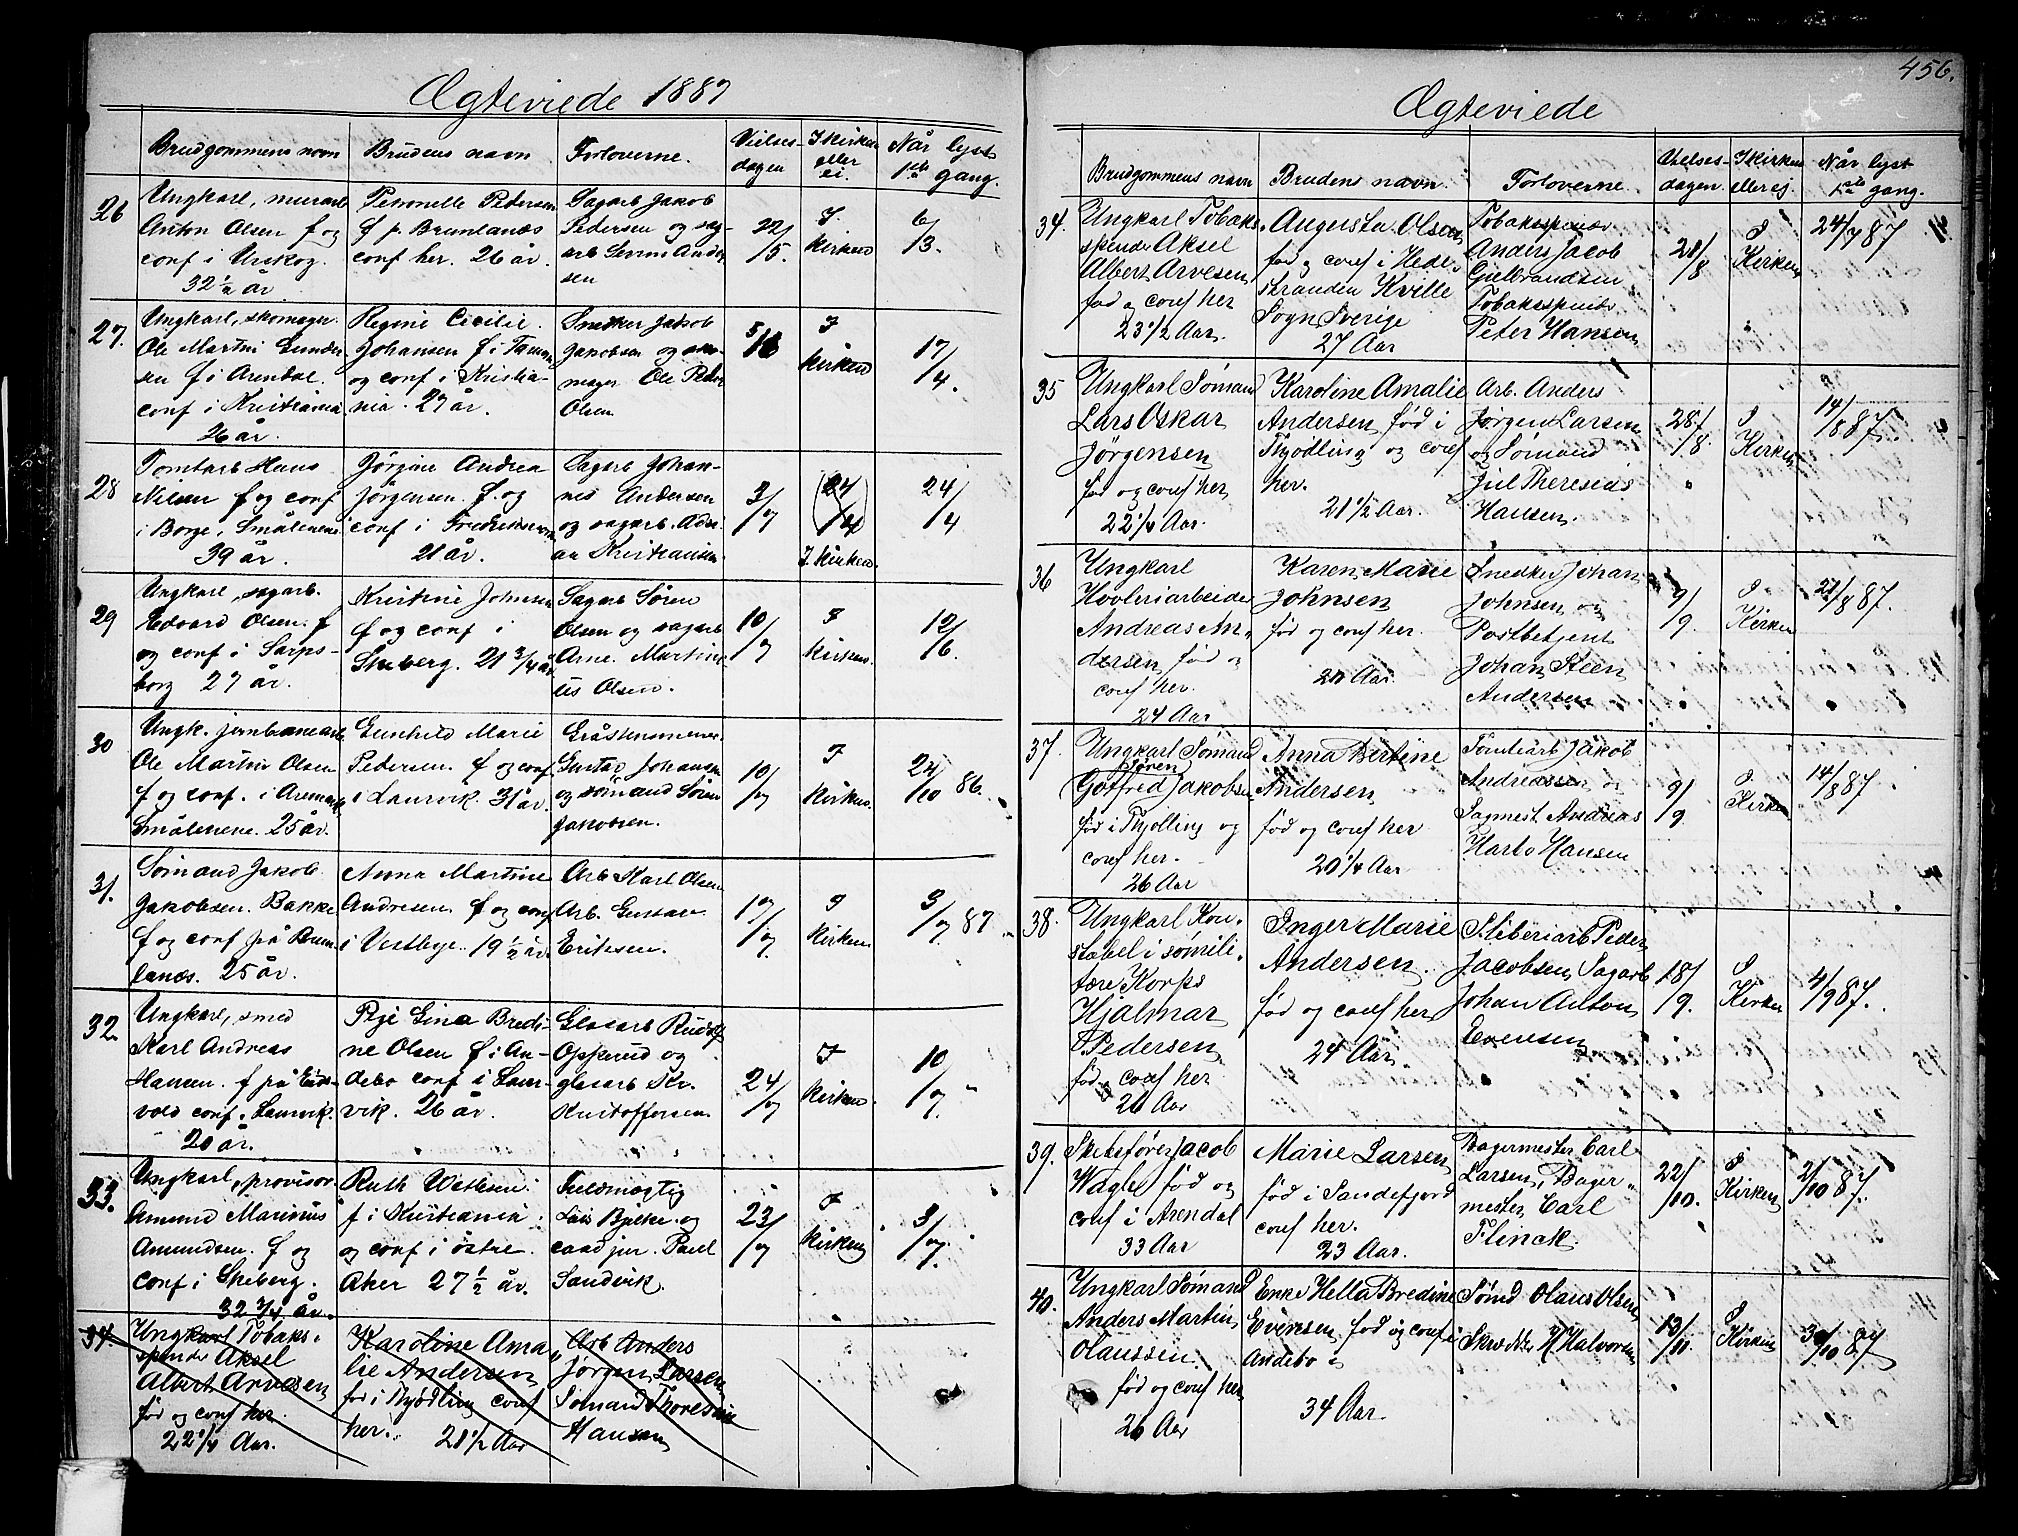 Ægteviede 1887
Brudgommens navn
Brudens navn
Forloverne.
Vielses-
dagen
I kirken
eller
ei.
Når lyst
1ste gang.
26
Ungkarl, murarb
Anton Olsen f og
conf i Urskog.
32 1/2 år
Petronelle Pedersen
f p Brunlanæs
conf her. 26 år.
Sagarb Jakob
Pedersen og sag-
arb Simon Ander
sen
22/5.
I
kirken
6/3.
27.
Ungkarl, skomager
Ole Martin Gunder
sen f i Arendal.
conf i Kristiania
26 år.
Regine Cicilie
Johansen f i
og conf i Kristia-
nia. 27 år.
Snedker Jakob
Jakobsen og sko-
mager Ole Peder
Olsen
5/6
I
kirken
17/4.
28
Tomtarb Hans
Nilsen f og conf
i Borge, Smålenene
39 år.
Jørgine Andrea
Jørgensen f. og
conf i Fredriksværn
21 år.
Sagarb Johan-
nes Andersen
og sagarb. Adri
an Kristiansen
3/7
(24/4)
I kirken.
24/4
29
Ungkarl, sagarb.
Edvard Olsen. f
og conf i Sarps-
borg 27 år.
Kristine Johnsen
f og conf i
Skeberg. 21 3/4 år
Sagarb Søren
Olsen og sagarb
Arne Martini
us Olsen.
10/7
I
kirken.
12/6.
30
Ungk. jernbanearb.
Ole Martin Olsen
f og conf. i Aremark
Smålenene. 25 år.
Gunhild Marie
Pedersen. f og conf
i Laurvik. 31 år.
Gråstensminer
Gustav Johansen
og sømand Søren
Jakobsen.
10/7
I
kirken.
24/10 86.
31.
Sømand Jakob
Jakobsen Bakke
f og conf på Brun
lanæs. 25 år.
Anna Martine
Andresen f og conf
i Vestbye. 19 1/2 år.
Arb Karl Olsen
Arb. Gustav
Eriksen.
17/7.
I
kirken
3/7 87.
32.
Ungkarl, smed
Karl Andreas
Hansen. f på Eids-
vold conf. Laurvik.
20 år.
Pige Gina Bredi-
ne Olsen f i An-
debo conf i Laur-
vik. 26 år.
Glasarb Rudolf
Opperud og
glasarb Kr.
Kristoffersen.
24/7
I
kirken.
10/7.
33.
Ungkarl, provisor
Amund Marinius
Amundsen. f og
conf i Skeberg.
32 3/4 år.
Ruth
f i Kristiania
og conf i østre
Aker 27 1/2 år.
Fuldmægtig
Lars Bjelke og
cand jur. Paul
Sandvik.
23/7
I
kirken
3/7.
34.
Ungkarl Tobaks-
spinder Aksel
Albert Arvesen
fød og conf her
22 1/4 Aar.
Karoline Ama
lie Andersen
fød i Thjødling conf
her. 21 1/2 Aar
Arb Anders
Jørgen Larsen
Sømand Theresius
Hansen
456.
Ægteviede
Brudgommens navn
Brudens navn.
Forloverne.
Vielses-
dagen.
I kirken
eller ej.
Når lyst
1ste gang.
34.
Ungkarl Tobaks
spinder Aksel
Albert Arvesen
fød og conf her
23 1/2 Aar.
Augusta Olsen
fød og conf i Hede-
stranden Kville
Sogn Sverige
27 Aar
Tobaksspinder
Anders Jacob
Gulbrandsen
Tobaksspinder
Peter Hansen
21/8
I
Kirken
24/7 87
35
Ungkarl Sømand
Lars Oskar
Jørgensen
fød og conf her
22 1/4 Aar.
Karoline Amalie
Andersen fød i
Thjødling og conf
her.
21 1/2 Aar.
Arb. Anders
Jørgen Larsen
og Sømand
Juil Theresius
Hansen.
28/8.
I
Kirken
14/8 87.
36
Ungkarl
Høvleriarbeider
Andreas An-
dersen fød og
conf her.
24 Aar
Karen Marie
Johnsen
fød og conf her.
Aar
Snedker Johan
Johnsen og
Postbetjent
Johan Steen
Andersen
9.
I
Kirken
21/8 87.
37.
Ungkarl Sømand
Søren
Gotfred Jakobsen
fød i Thjølling og
conf her.
26 Aar
Anna Bertine
Andersen
fød og conf her
20 1/4 Aar
Tomtearb Jakob
Andreassen og
Sagmest. Andreas
Harbo Hansen
9/9.
I
Kirken
14/8 87
38.
Ungkarl Kon-
stabel i sømili-
tære Korps
Hjalmar
Pedersen
fød og conf her
26 Aar
Inger Marie
Andersen.
fød og conf her
24 Aar.
Sliberiarb Peder
Jacobsen, Sagarb
Johan Anton
Evensen
18/9.
I
Kirken
4/9 87.
39.
Skibsfører Jacob
Wagle fød og
conf i Arendal
33 Aar
Marie Larsen
fød i Sandefjord
conf her.
23 Aar.
Bagermester Carl
Larsen, Bager-
mester Carl
Flinck.
22/10.
I
Kirken
2/10 87.
40.
Ungkarl Sømand
Anders Martin
Olaussen.
fød og conf her
26 Aar
Enke Hella Bredine
Evensen fød og conf i
Andebo
34 Aar.
Sømd Olaus Olsen
Skrædder H Halvorsen
13/11.
I
Kirken
30/10 87